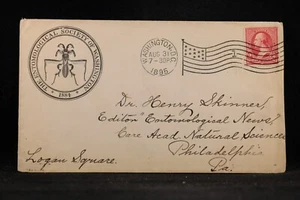 THE ENTOMOLOGICAL SOCIETY OF WASHINGTON
1884
WASHINGTON, D.C.
AUG 31
7-30PM
1895
1
Dr. Henry Skinner
Editor Entomological News
Care Acad Natural Sciences
Philadelphia
Logan Square.
Pa.